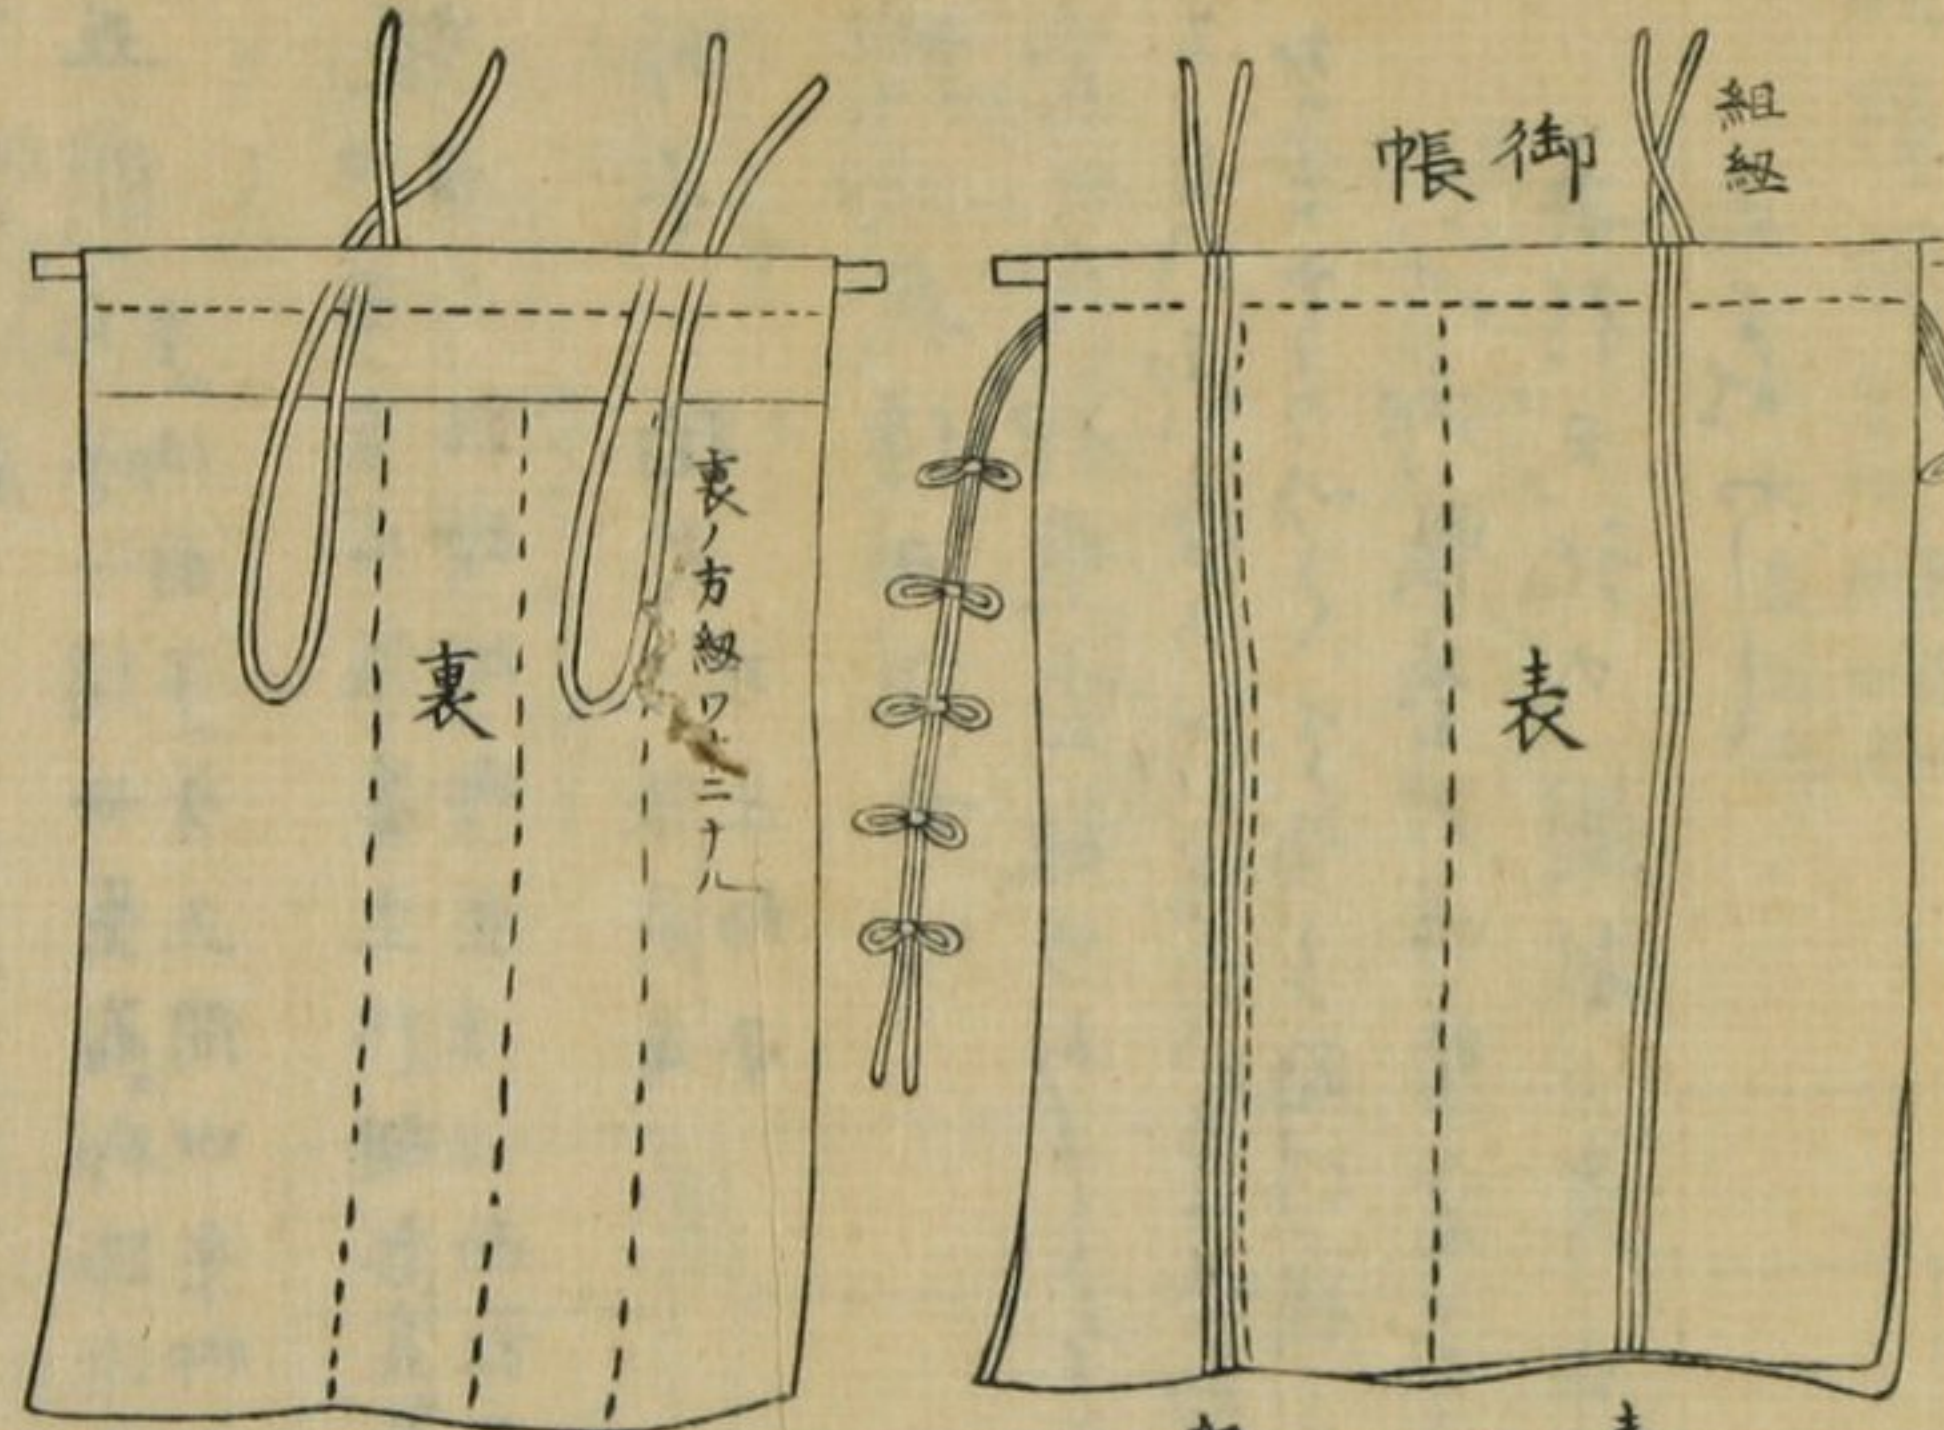 組紐
御帳
表
裏ノ方紐ワ
ニナル
裏